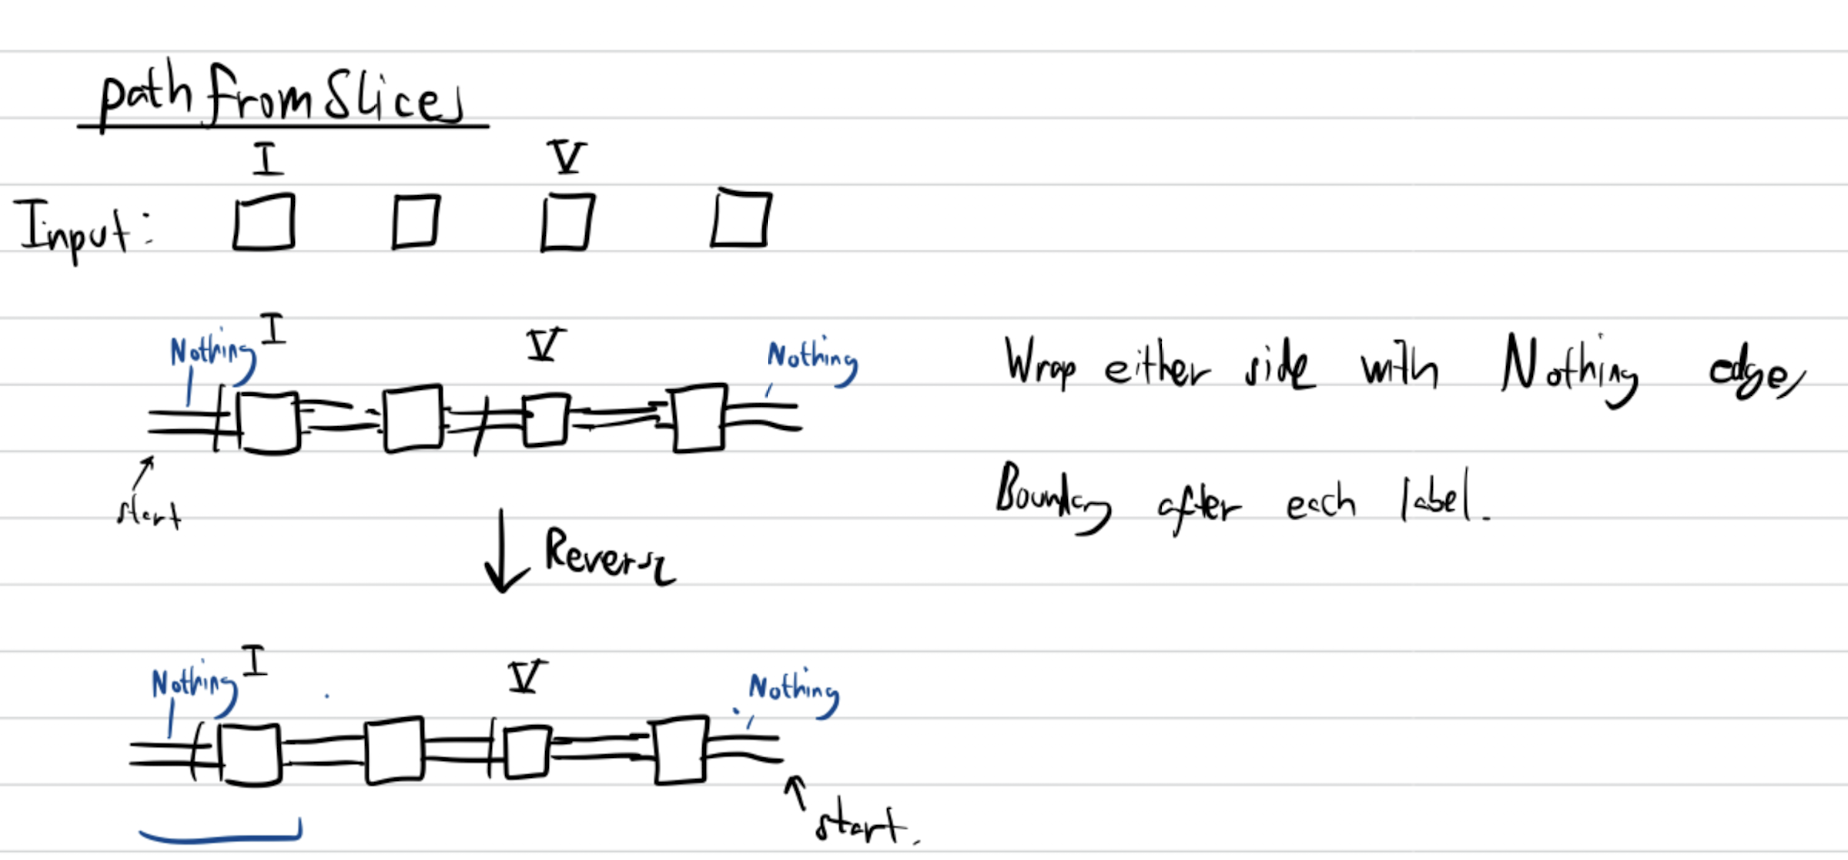 pathFromSlices
I V
Input:
Nothing I V Nothing
Wrap either side with Nothing edge,
start
Boundary after each label.
Reverse
Nothing I V Nothing
start.